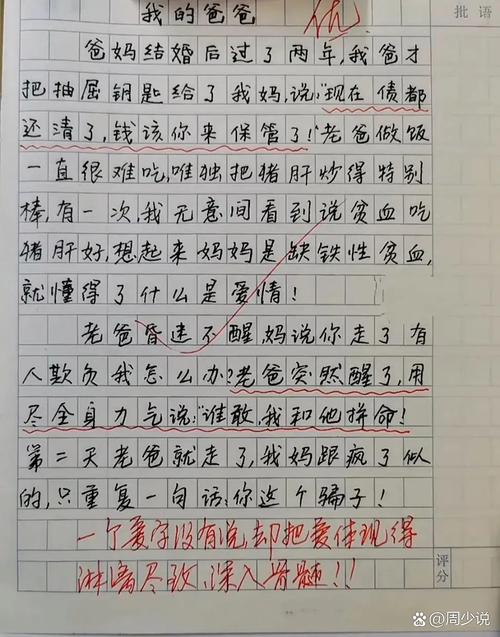 我的爸爸
优
批语
爸妈结婚后过了两年,我爸才
把抽屉钥匙给了我妈,说:“现在债都
还清了,钱该你来保管了!”老爸做饭
一直很难吃,唯独把猪肝炒得特别
棒,有一次,我无意间看到说贫血吃
猪肝好,想起来妈妈是缺铁性贫血,
就懂得了什么是爱情!
老爸昏迷不醒,妈说你走了有
人欺负我怎么办?老爸突然醒了,用
尽全身力气说:“谁敢,我和他拼命!
第二天老爸就走了,我妈跟疯了似
的,只重复一句话:你这个骗子!
一个爱字没有说,却把爱体现得
淋漓尽致,深入骨髓!!
评分
百家号/周少说